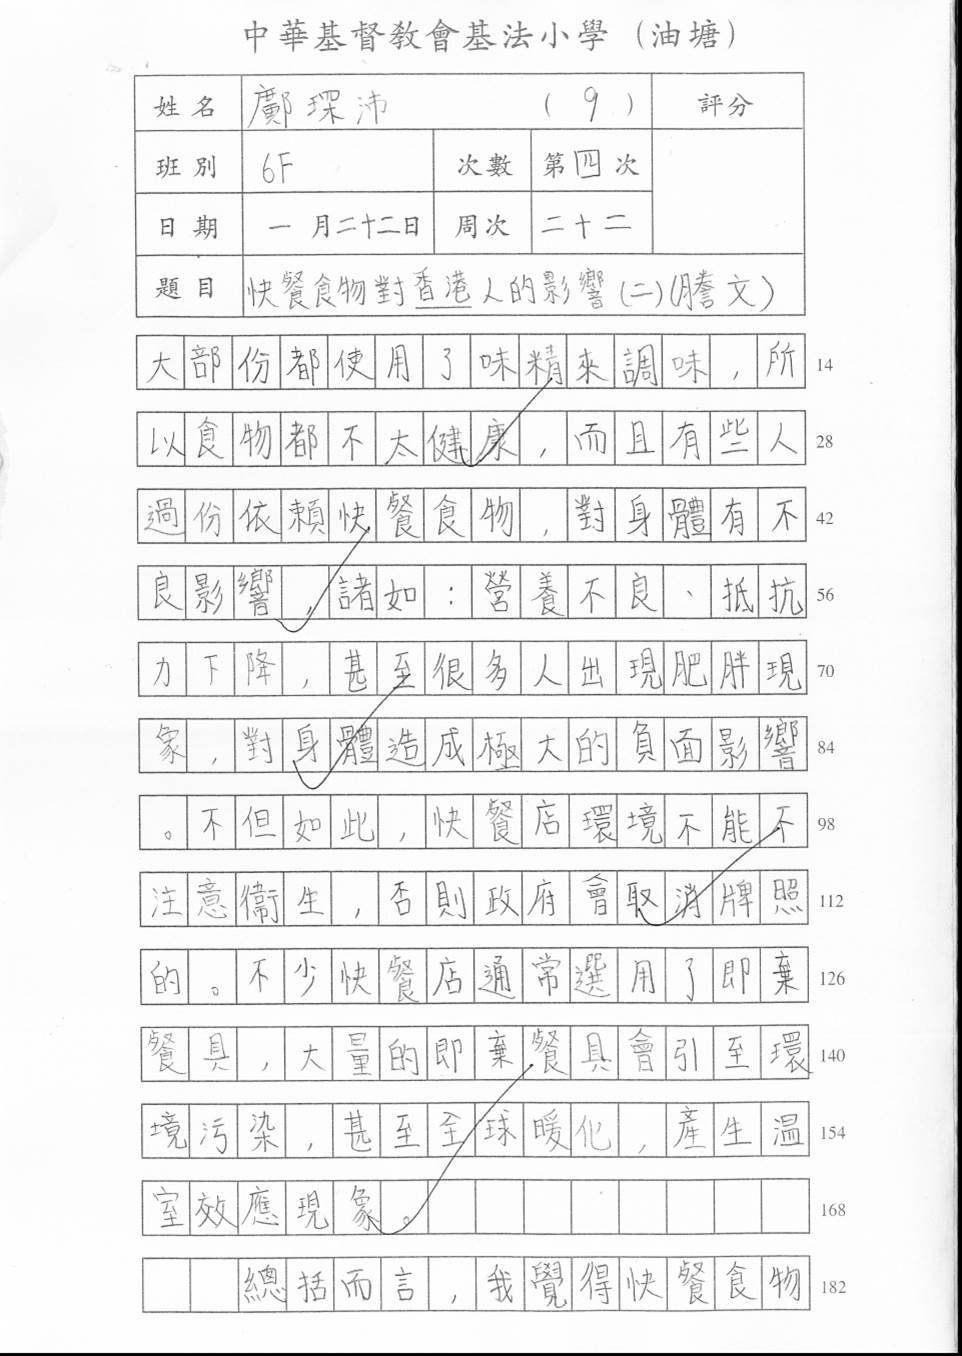 中華基督教會基法小學（油塘）
姓名 鄺琛沛 （9） 評分
班別 6F 次數 第四次
日期 一月二十二日 周次 二十二
題目 快餐食物對香港人的影響(二)(謄文)
大部份都使用了味精來調味，所 14
以食物都不太健康，而且有些人 28
過份依賴快餐食物，對身體有不 42
良影響，諸如：營養不良、抵抗 56
力下降，甚至很多人出現肥胖現 70
象，對身體造成極大的負面影響 84
。不但如此，快餐店環境不能不 98
注意衞生，否則政府會取消牌照 112
的。不少快餐店通常選用了即棄 126
餐具，大量的即棄餐具會引至環 140
境污染，甚至全球暖化，產生溫 154
室效應現象。 168
總括而言，我覺得快餐食物 182